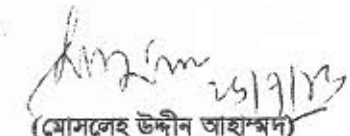 ২৫/৭/১৩
(মোসলেহ উদ্দীন আহাম্মদ)